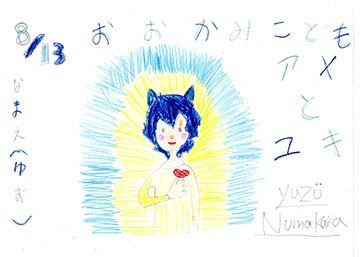 8/13
おおかみこども
アメ
と
ユキ
なまえ(ゆず)
yuzü
Numakura